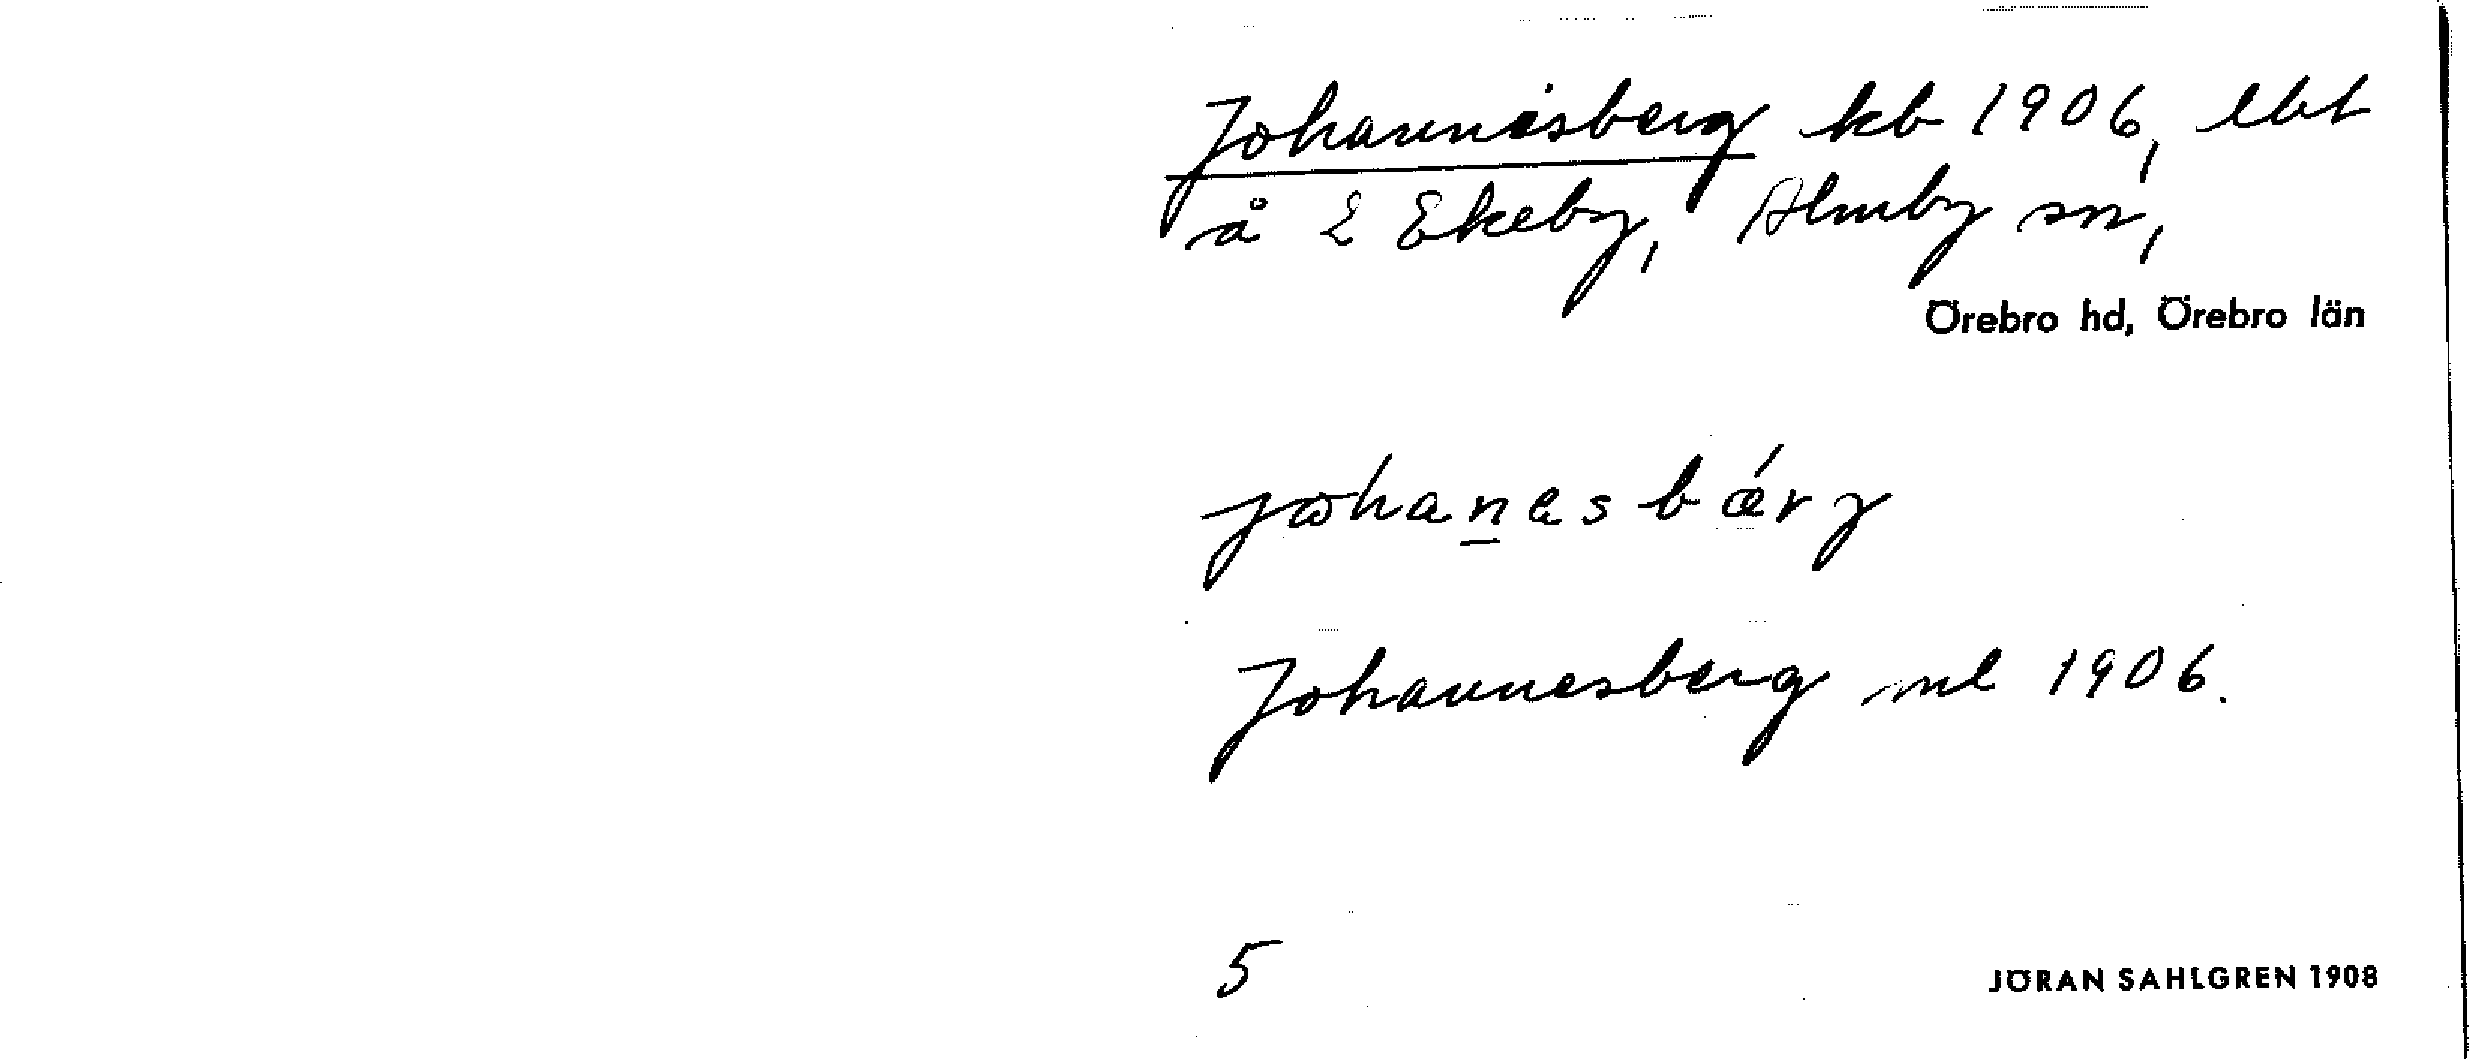 Johannesberg kb 1906, lbt
å L Ekeby, Almby sn,
Örebro hd, Örebro län
johanesbǽrj
Johannesberg ml 1906.
5
JÖRAN SAHLGREN 1908